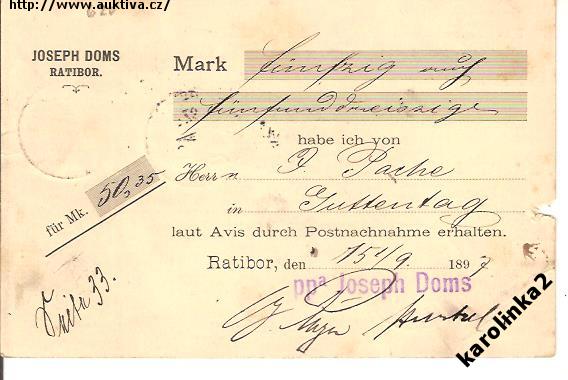 http://www.auktiva.cz/
JOSEPH DOMS
RATIBOR.
Mark fünfzig auf
fünfunddreissig
habe ich von
Herrn J. Pache
in Guttentag
für Mk. 50,35
laut Avis durch Postnachnahme erhalten.
Ratibor, den 15t/9. 1897
ppa Joseph Doms
33.
karolinka2